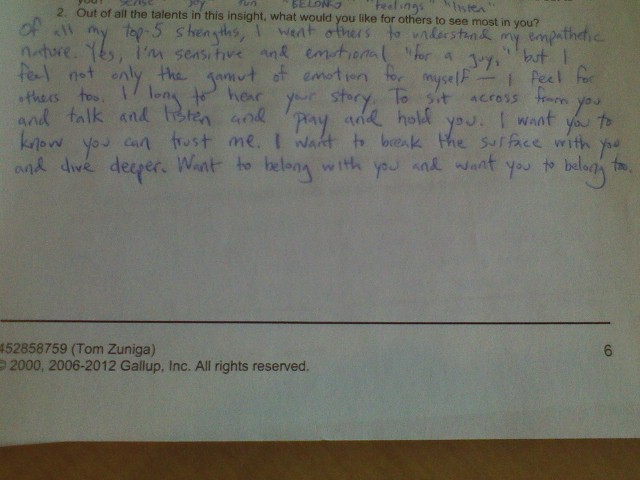 your sense joy fun BELONG "feelings" "listen"
2. Out of all the talents in this insight, what would you like for others to see most in you?
Of all my top-5 strengths, I want others to understand my empathetic
nature. Yes, I'm sensitive and emotional "for a guy," but I
feel not only the gamut of emotion for myself — I feel for
others too. I long to hear your story. To sit across from you
and talk and listen and pray and hold you. I want you to
know you can trust me. I want to break the surface with you
and dive deeper. Want to belong with you and want you to belong too.
452858759 (Tom Zuniga)
© 2000, 2006-2012 Gallup, Inc. All rights reserved.
6